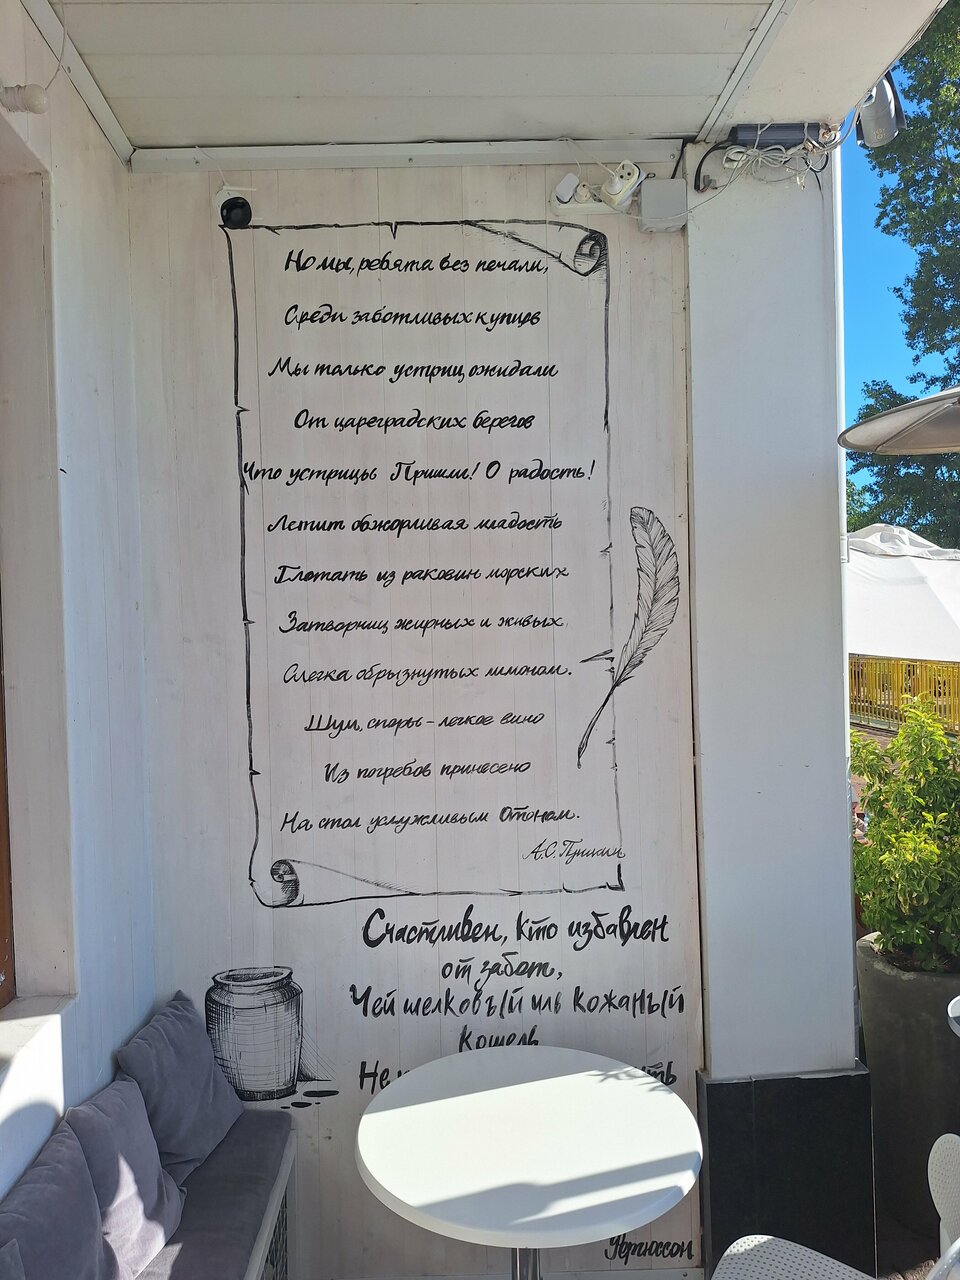 Но мы, ребята без печали,
Среди заботливых купцов
Мы только устриц ожидали
От цареградских берегов
Что устрицы Пришли! О радость!
Летит обжорливая младость
Глотать из раковин морских
Затворниц жирных и живых,
Слегка обрызнутых лимоном.
Шум, споры - легкое вино
Из погребов принесено
На стол услужливым Отоном.
А.С. Пушкин
Счастливен, кто избавлен
от забот,
Чей шелковый иль кожаный
кошель
Не
Фергюссон